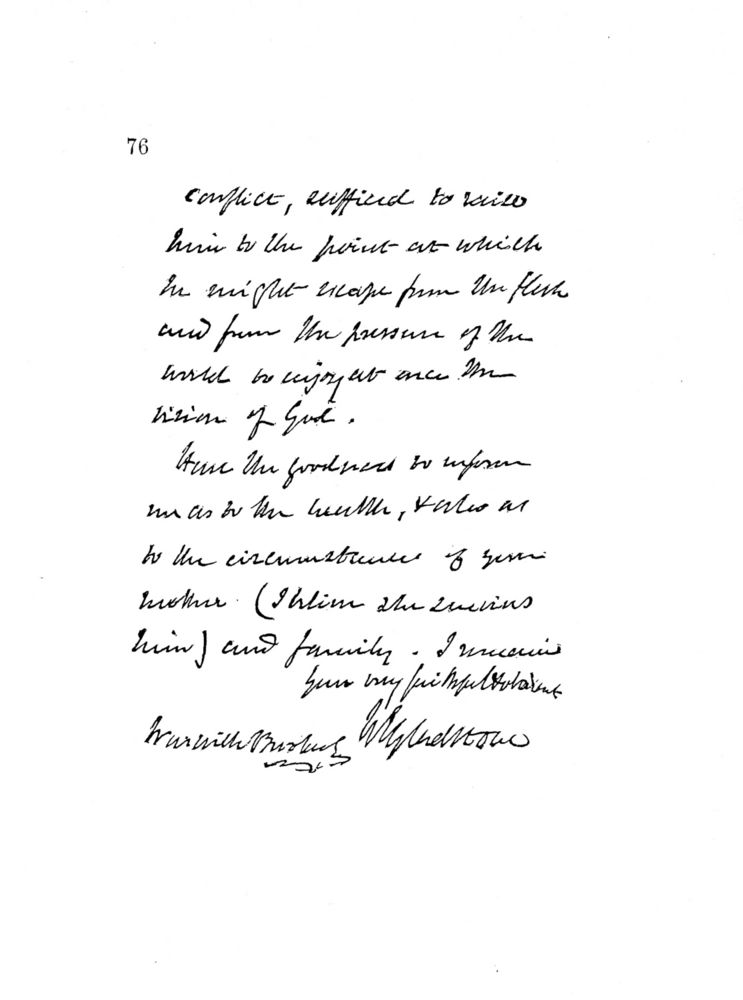 76
conflict, sufficed to raise
him to the point at which
he might escape from the flesh
and from the pressure of the
world to enjoy at once the
vision of God.
Have the goodness to inform
me as to the health, & also as
to the circumstances of your
mother (I believe she survives
him) and family. I remain
Your very faithful & obedient
WEGladstone
Warwick Brookes